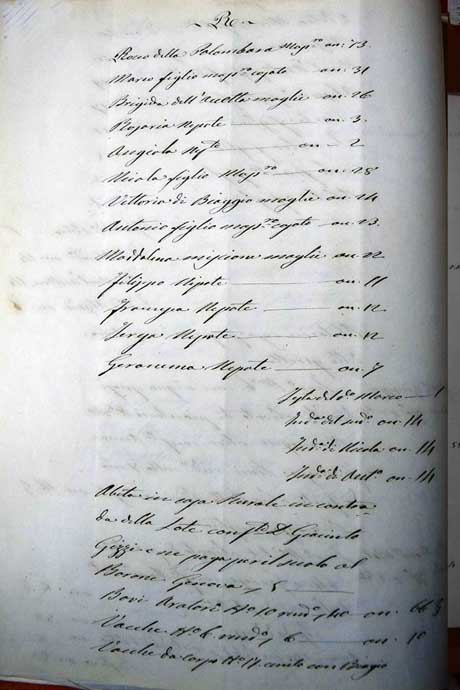 Ro
Rocco della Palombara Mass.ro an: 73.
Marco figlio mass.ro casato — an: 31
Brigida dell'Aretta moglie — an: 26
Rosaria Nepote — an: 3.
Angiola Nep.te — an: 2
Nicola figlio Mass.ro — an: 28
Vittoria di Biaggio moglie — an: 24
Antonio figlio mass.ro casato — an: 23.
Maddalena moglie an: 22
Filippo Nepote — an: 11
Francesca Nepote — an: 12
Teresa Nepote — an: 12
Geronima Nepote — an: 7
Testa di d.o Marco — 1
Ind.a del med.o an: 14
Ind.a di Nicola an: 14
Ind.a di Ant.o an: 14
Abita in casa Rurale in contra-
da della con D. Giacinto
Gizzi e ne paga per il suolo al
Barone Genova
Bovi Aratorj N.o 10 an: 66
Vacche N.o 6 — an: 10
Vacche da corpo N.o 17. con Biagio